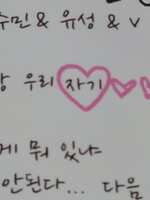 수민 & 유성 & v
우리 자기
게 뭐 있냐
안된다... 다음